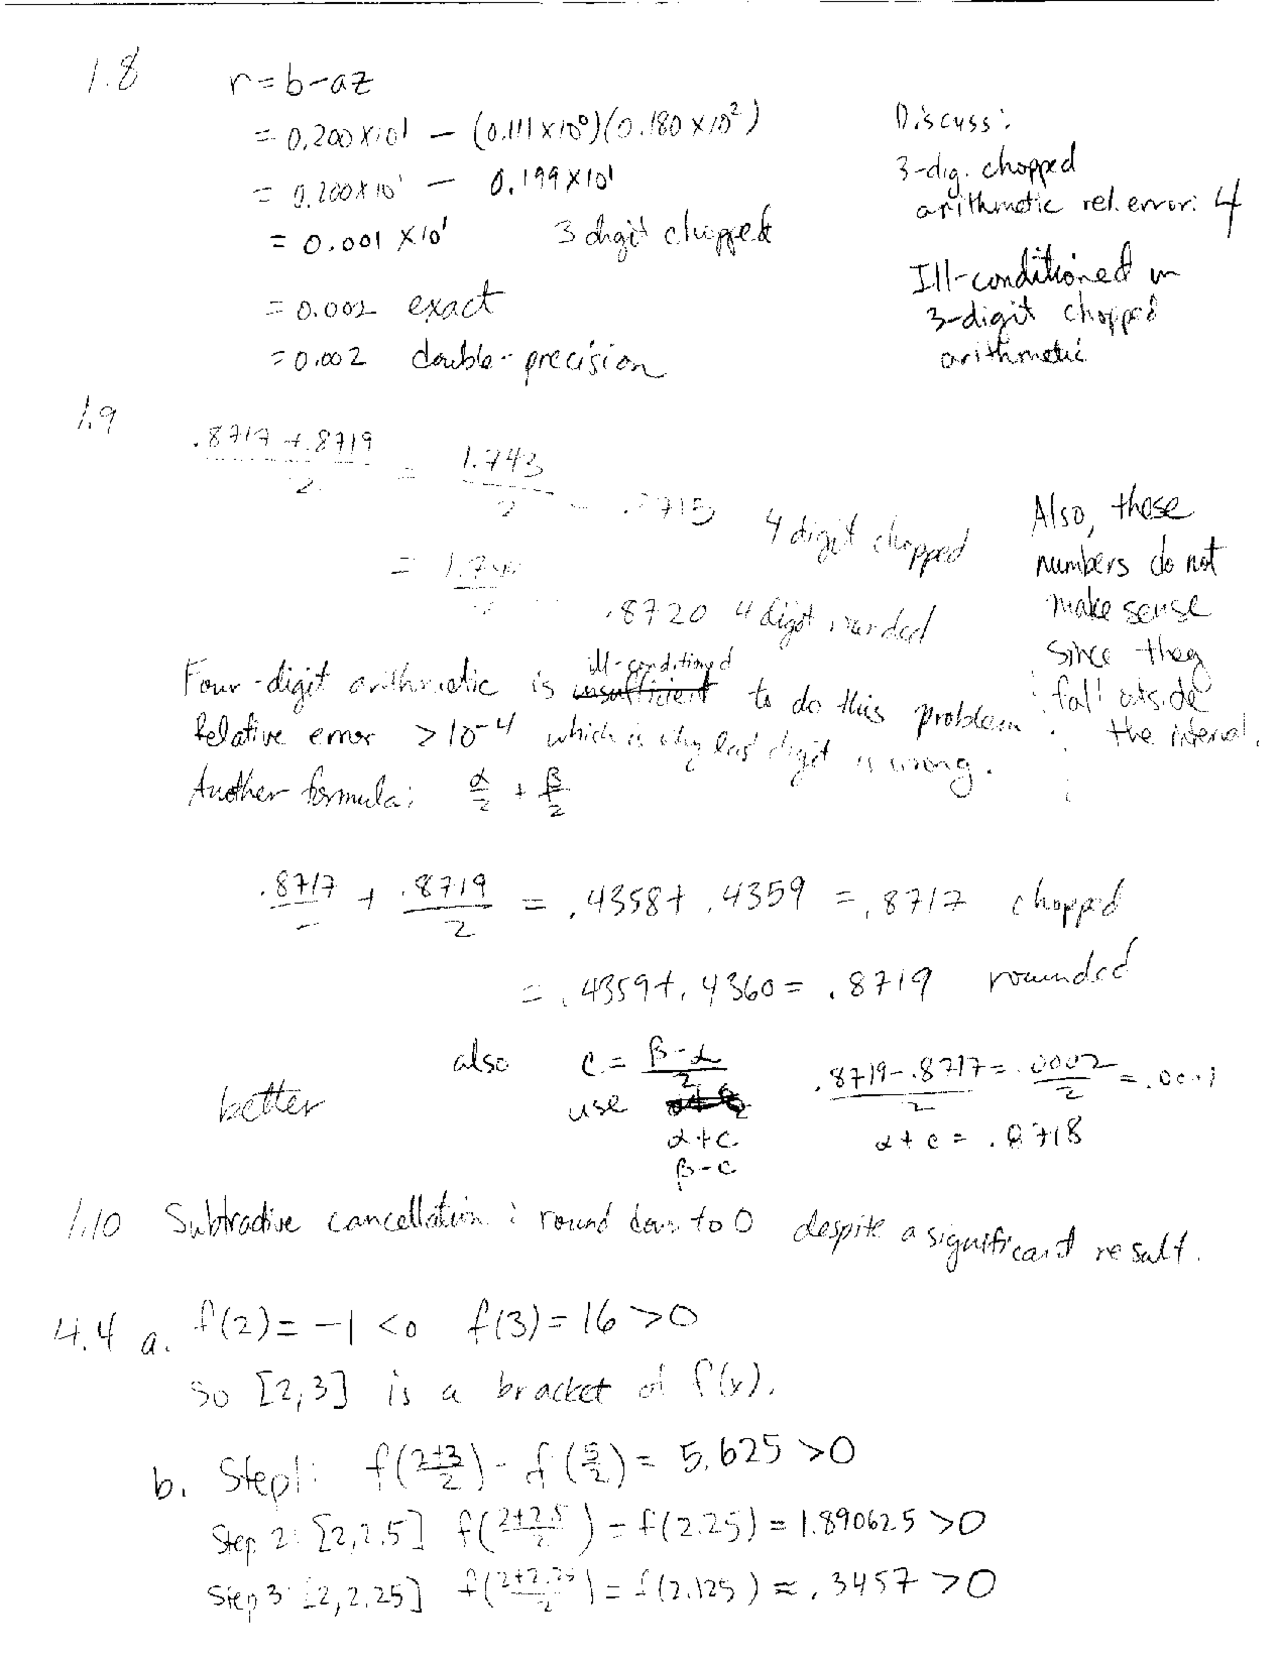 1.8 r = b - az
= 0.200 × 10¹ - (0.111 × 10⁰)(0.180 × 10²)
= 0.200 × 10¹ - 0.199 × 10¹
= 0.001 × 10¹ 3 digit chopped
= 0.002 exact
= 0.002 double-precision
Discuss:
3-dig. chopped
arithmetic rel. error: 4
Ill-conditioned in
3-digit chopped
arithmetic
1.9 (.8717 + .8719)/2 = 1.743/2 = .8715 4 digit chopped
= .8720 4 digit rounded
Also, these
numbers do not
make sense
since they
fall outside
the interval.
Four-digit arithmetic is ill-conditioned to do this problem.
Relative error > 10⁻⁴ which is why last digit is wrong.
Another formula: α/2 + β/2
.8717/ + .8719/2 = .4358 + .4359 = .8717 chopped
= .4359 + .4360 = .8719 rounded
better
also c = (β - α)/2
use
α + c
β - c
(.8719 - .8717)/2 = .0002/2 = .0001
α + c = .8718
1.10 Subtractive cancellation: round down to 0 despite a significant result.
4.4 a. f(2) = -1 < 0 f(3) = 16 > 0
So [2,3] is a bracket of f(x).
b. Step 1: f((2+3)/2) = f(5/2) = 5.625 > 0
Step 2: [2, 2.5] f((2+2.5)/2) = f(2.25) = 1.890625 > 0
Step 3: [2, 2.25] f((2+2.25)/2) = f(2.125) ≈ .3457 > 0